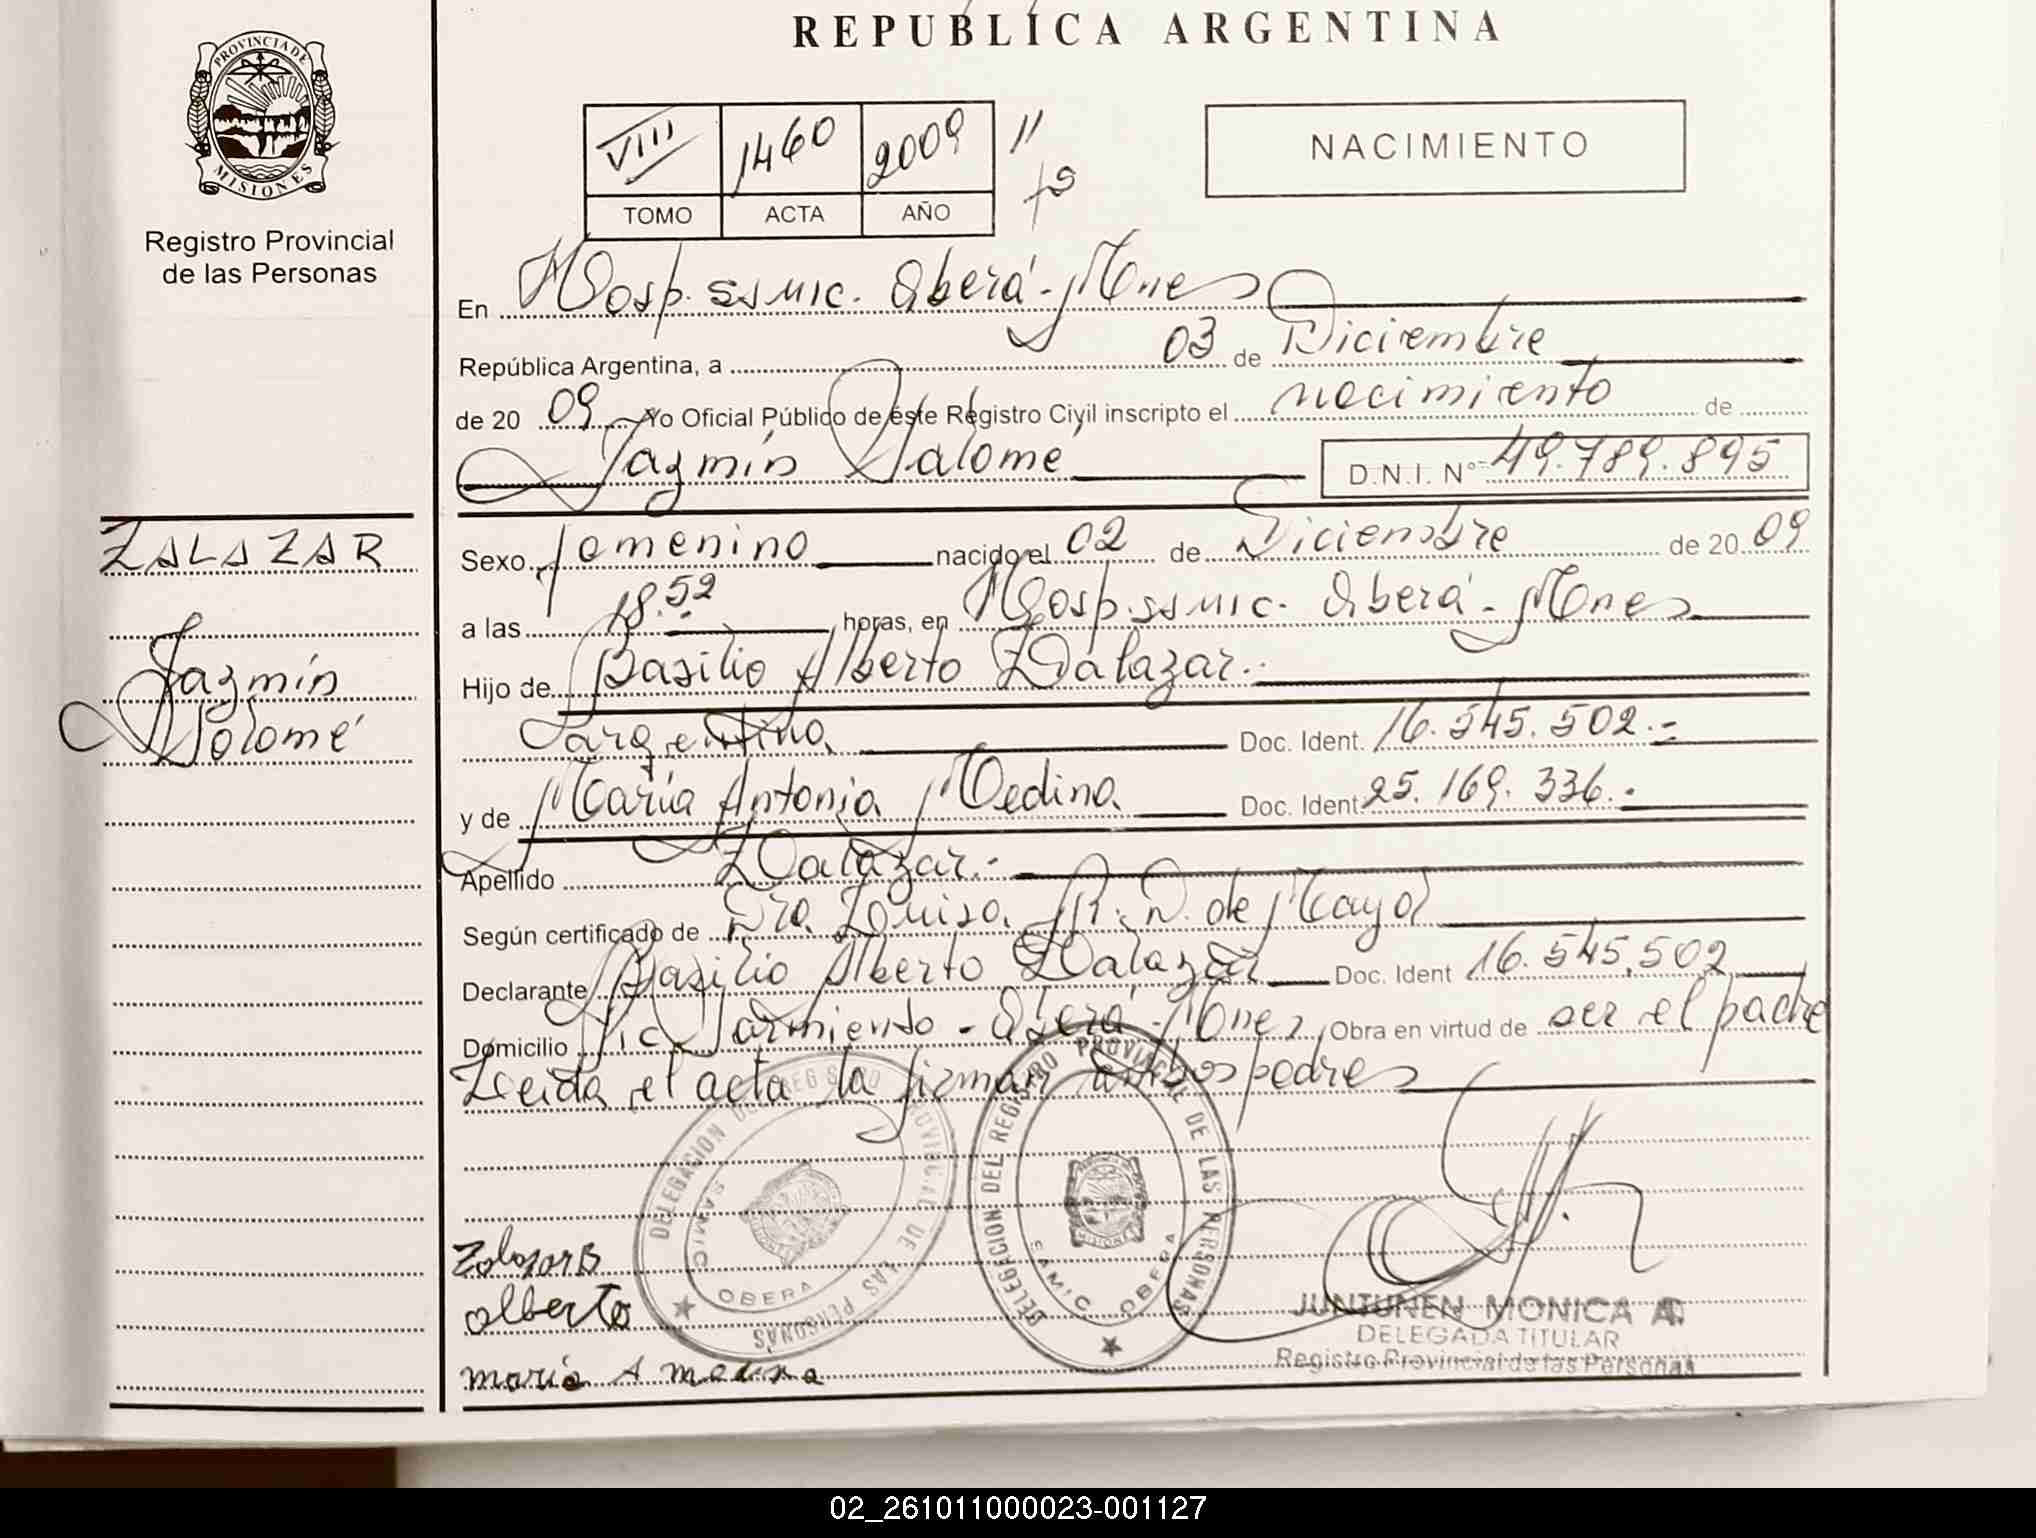 REPUBLICA ARGENTINA
PROVINCIA DE MISIONES
Registro Provincial
de las Personas
VIII 1460 2009
TOMO ACTA AÑO
NACIMIENTO
En Hosp. SSMIC. Oberá - Mnes
República Argentina, a 03 de Diciembre
de 20 09 Yo Oficial Público de éste Registro Civil inscripto el nacimiento de
Jazmín Salomé D.N.I. Nº 49.789.895
ZALAZAR
Jazmín
Salomé
Sexo femenino nacido el 02 de Diciembre de 20 09
a las 18.52 horas, en Hosp. SSMIC. Oberá - Mnes
Hijo de Basilio Alberto Zalazar.
argentina Doc. Ident. 16.545.502.=
y de María Antonia Medina Doc. Ident. 25.169.336.-
Apellido Zalazar.-
Según certificado de Dra. Luisa de Mayol
Declarante Basilio Alberto Zalazar Doc. Ident 16.545.502
Domicilio Sarmiento - Oberá - Mnes Obra en virtud de ser el padre
Leida el acta la firman ambos padres
DELEGACION DEL REGISTRO PROVINCIAL DE LAS PERSONAS
SAMIC OBERA
DELEGACION DEL REGISTRO PROVINCIAL DE LAS PERSONAS
SAMIC OBERA
Zalazar B
alberto
maria A medina
JUNTUNEN MONICA A.
DELEGADA TITULAR
Registro Provincial de las Personas
02_261011000023-001127